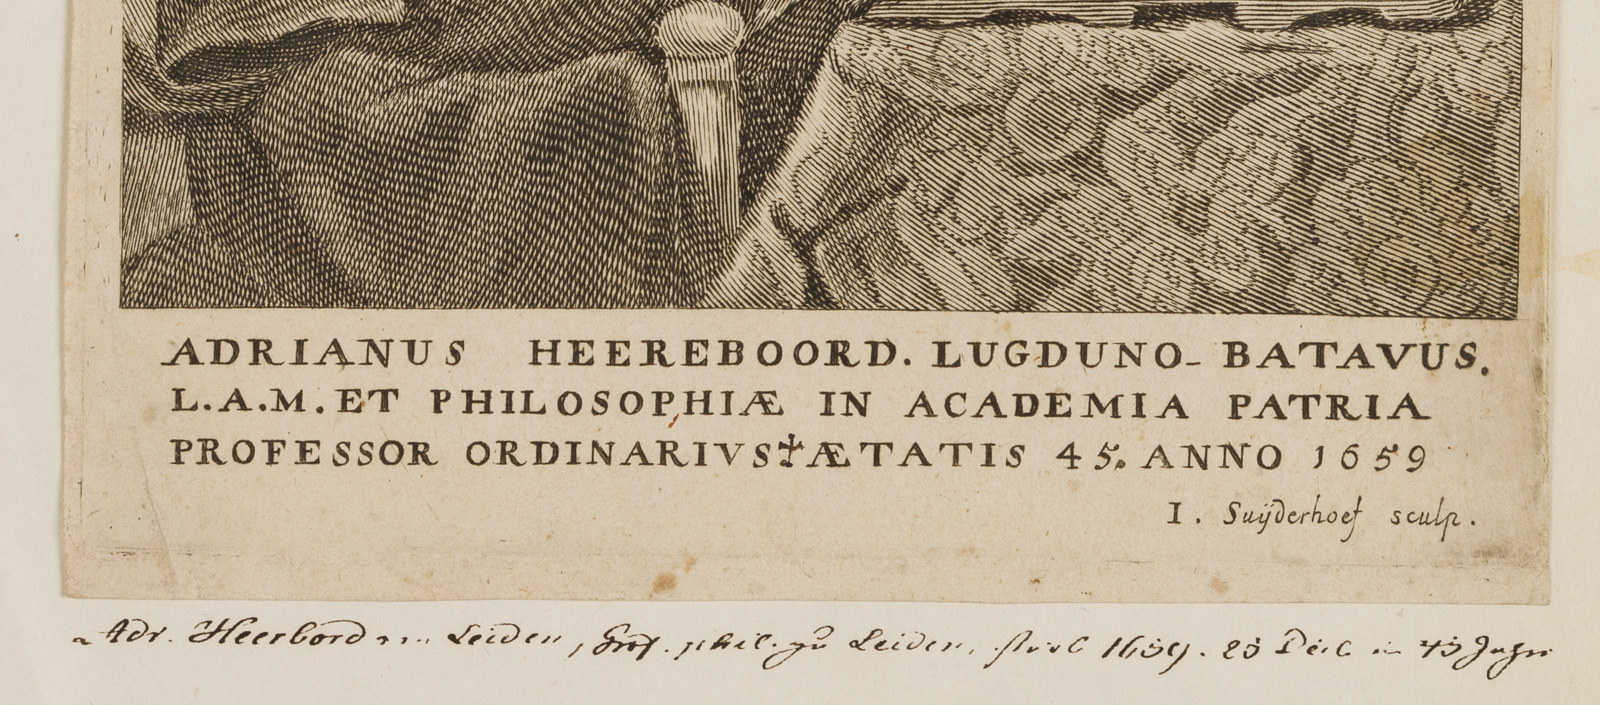 ADRIANUS HEEREBOORD. LUGDUNO- BATAVUS.
L.A.M. ET PHILOSOPHIÆ IN ACADEMIA PATRIA
PROFESSOR ORDINARIVS ☩ ÆTATIS 45. ANNO 1659
I. Suÿderhoef sculp.
Adr. Heerbord Leiden, Prof. phil. zu Leiden, starb 1659. 25 im 45 Jahr